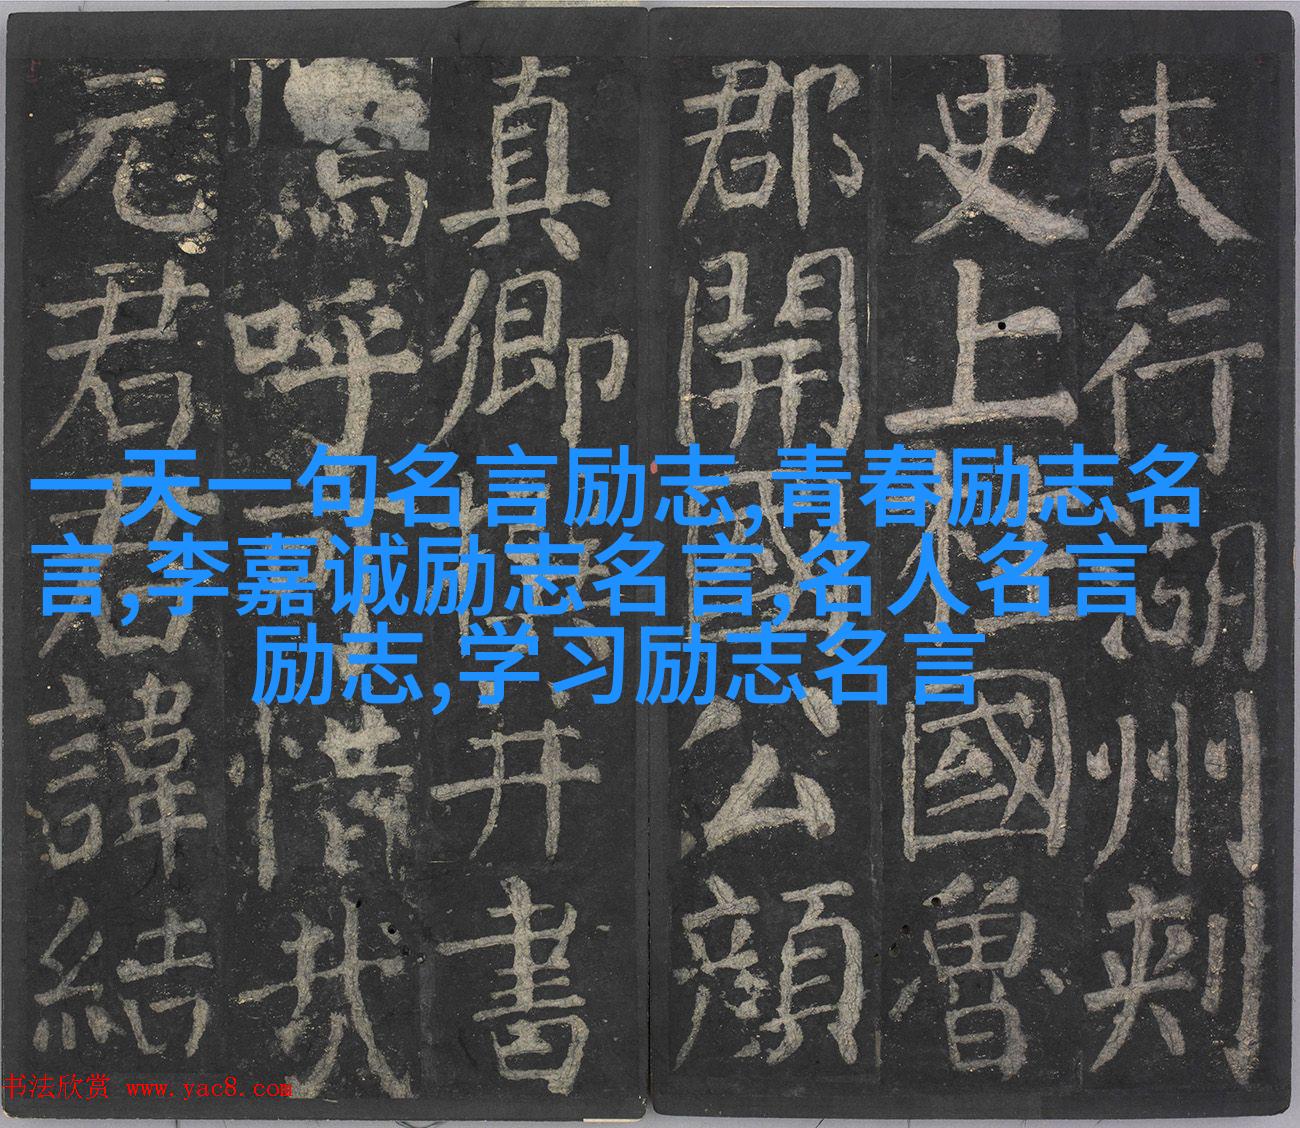 夫行湖州刺
史上柱國魯
郡開國公顏
真卿撰并書
嗚呼可惜哉
元君君諱結
一天一句名言励志,青春励志名
言,李嘉诚励志名言,名人名言
励志,学习励志名言
书法欣赏 www.yac8.com